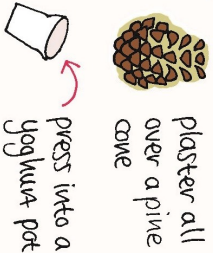 plaster all
over a pine
cone
press into a
yoghurt pot